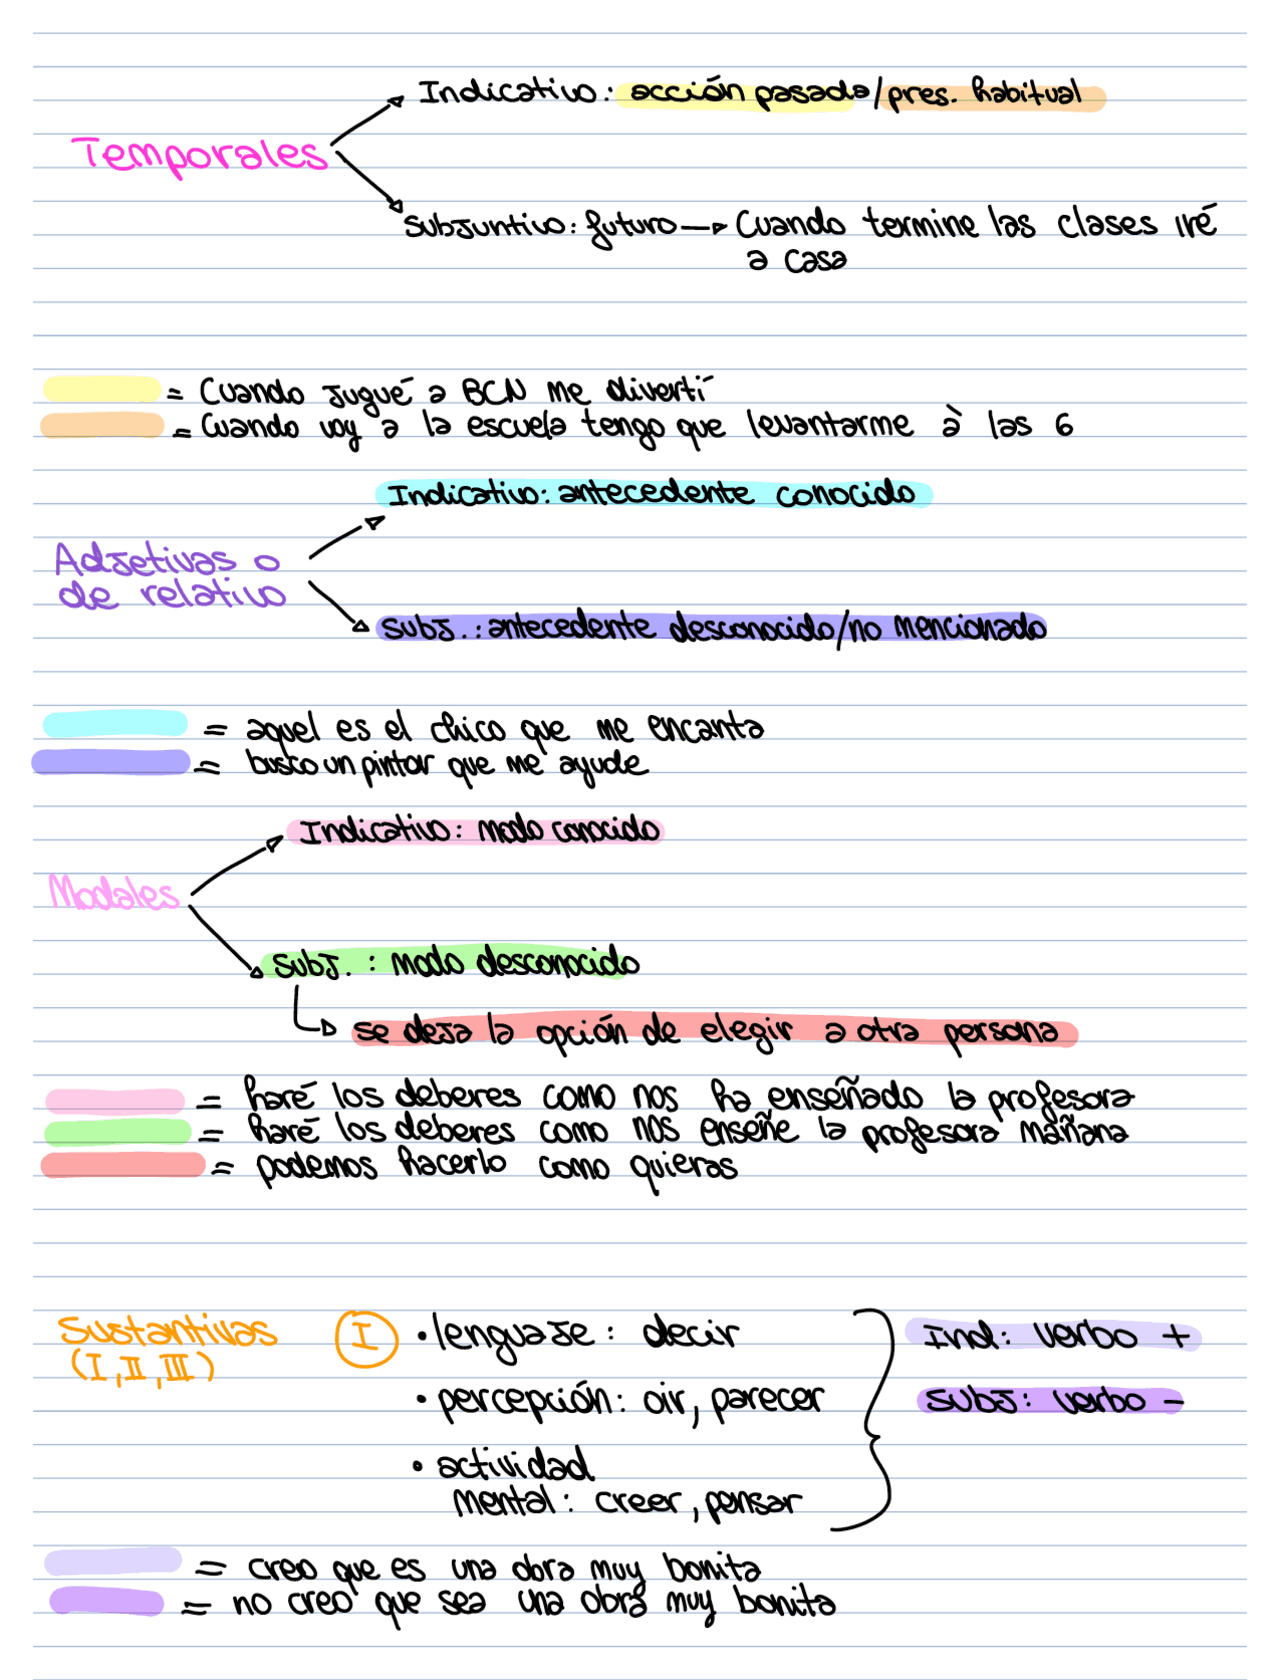 Indicativo: acción pasada/pres. habitual
Temporales
Subjuntivo: futuro → Cuando termine las clases iré
a casa
= Cuando jugué a BCN me divertí
= Cuando voy a la escuela tengo que levantarme à las 6
Indicativo: antecedente conocido
Adjetivas o
de relativo
subj.: antecedente desconocido/no mencionado
= aquel es el chico que me encanta
= busco un pintor que me ayude
Indicativo: modo conocido
Modales
subj. : modo desconocido
se deja la opción de elegir a otra persona
= haré los deberes como nos ha enseñado la profesora
= haré los deberes como nos enseñe la profesora mañana
= podemos hacerlo como quieras
Sustantivas I • lenguaje: decir Ind: verbo +
(I, II, III)
• percepción: oir, parecer subj: verbo -
• actividad
mental: creer, pensar
= creo que es una obra muy bonita
= no creo que sea una obra muy bonita